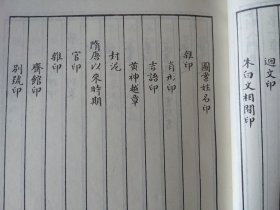 迴文印
朱白文相間印
圖案姓名印
雜印
肖形印
吉語印
黃神越章
封泥
隋唐以來時期
官印
雜印
齋館印
別號印